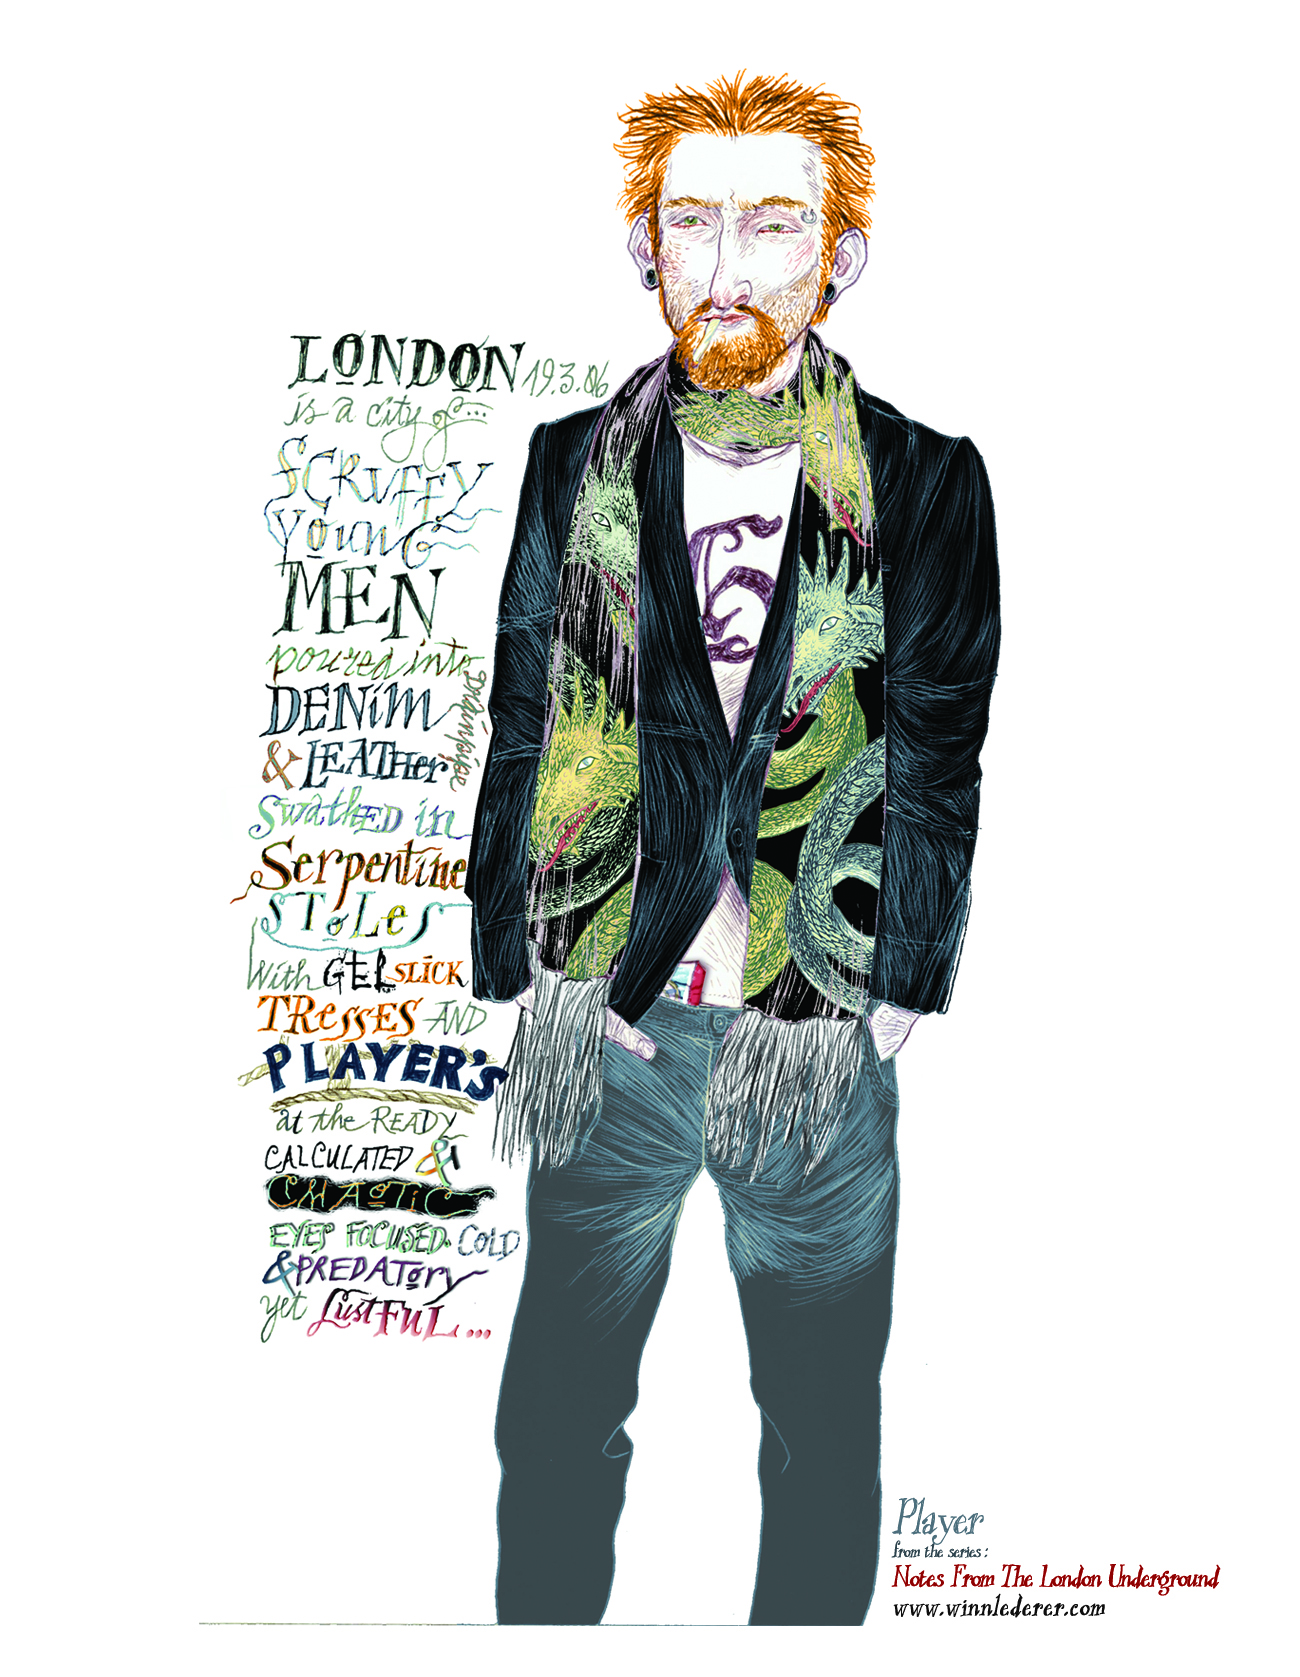 LONDON 19.3.06
is a city of...
SCRUFFY
YOUNG
MEN
poured into
DENIM
Drainpipe
& LEATHER
Swathed in
Serpentine
STOLES
With GEL SLICK
TRESSES AND
PLAYER'S
at the READY
CALCULATED &
CHAOTIC
EYES FOCUSED. COLD
& PREDATORY
yet LUSTFUL...
Player
from the series:
Notes From The London Underground
www.winnlederer.com